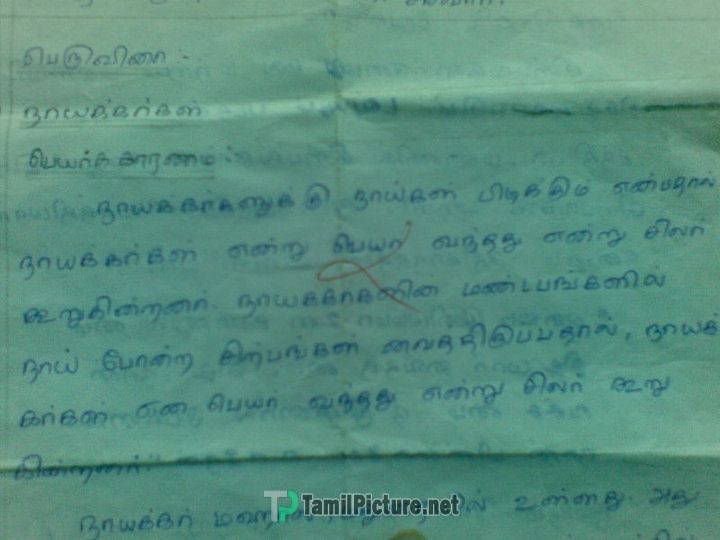 பெருவினா -
நாயக்கர்கள்
பெயர்க்காரணம் :
நாயக்கர்களுக்கு நாய்கள் பிடிக்கும் என்பதால்
நாயக்கர்கள் என்று பெயர் வந்தது என்று சிலர்
கூறுகின்றனர். நாயக்கர்களின் மண்டபங்களில்
நாய் போன்ற சிற்பங்கள் வைத்திருப்பதால், நாயக்
கர்கள் என பெயர் வந்தது என்று சிலர் கூறு
கின்றனர்.
நாயக்கர் உள்ளது. அது
TamilPicture.net